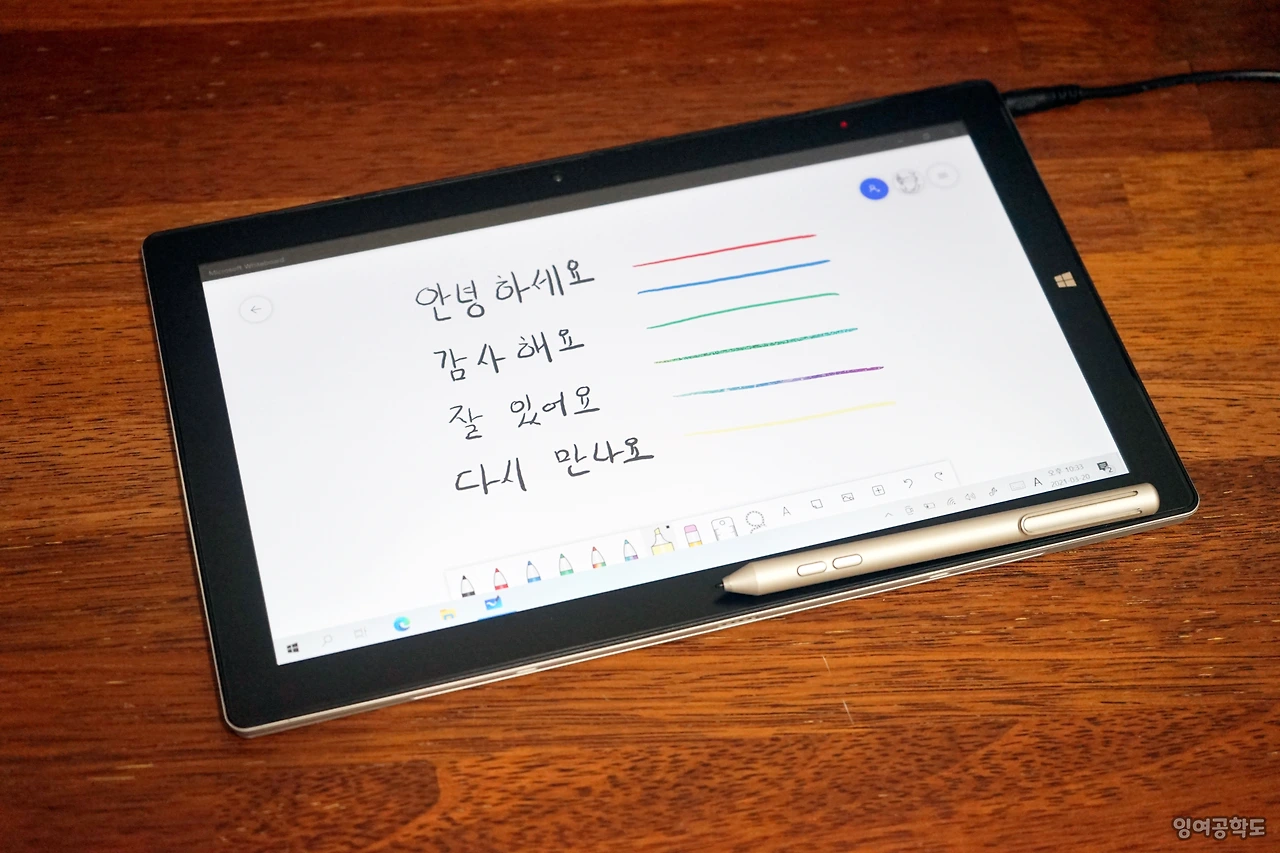 Microsoft Whiteboard
안녕하세요
감사해요
잘 있어요
다시 만나요
A
A
오후 10:33
2021-03-20
2
잉여공학도